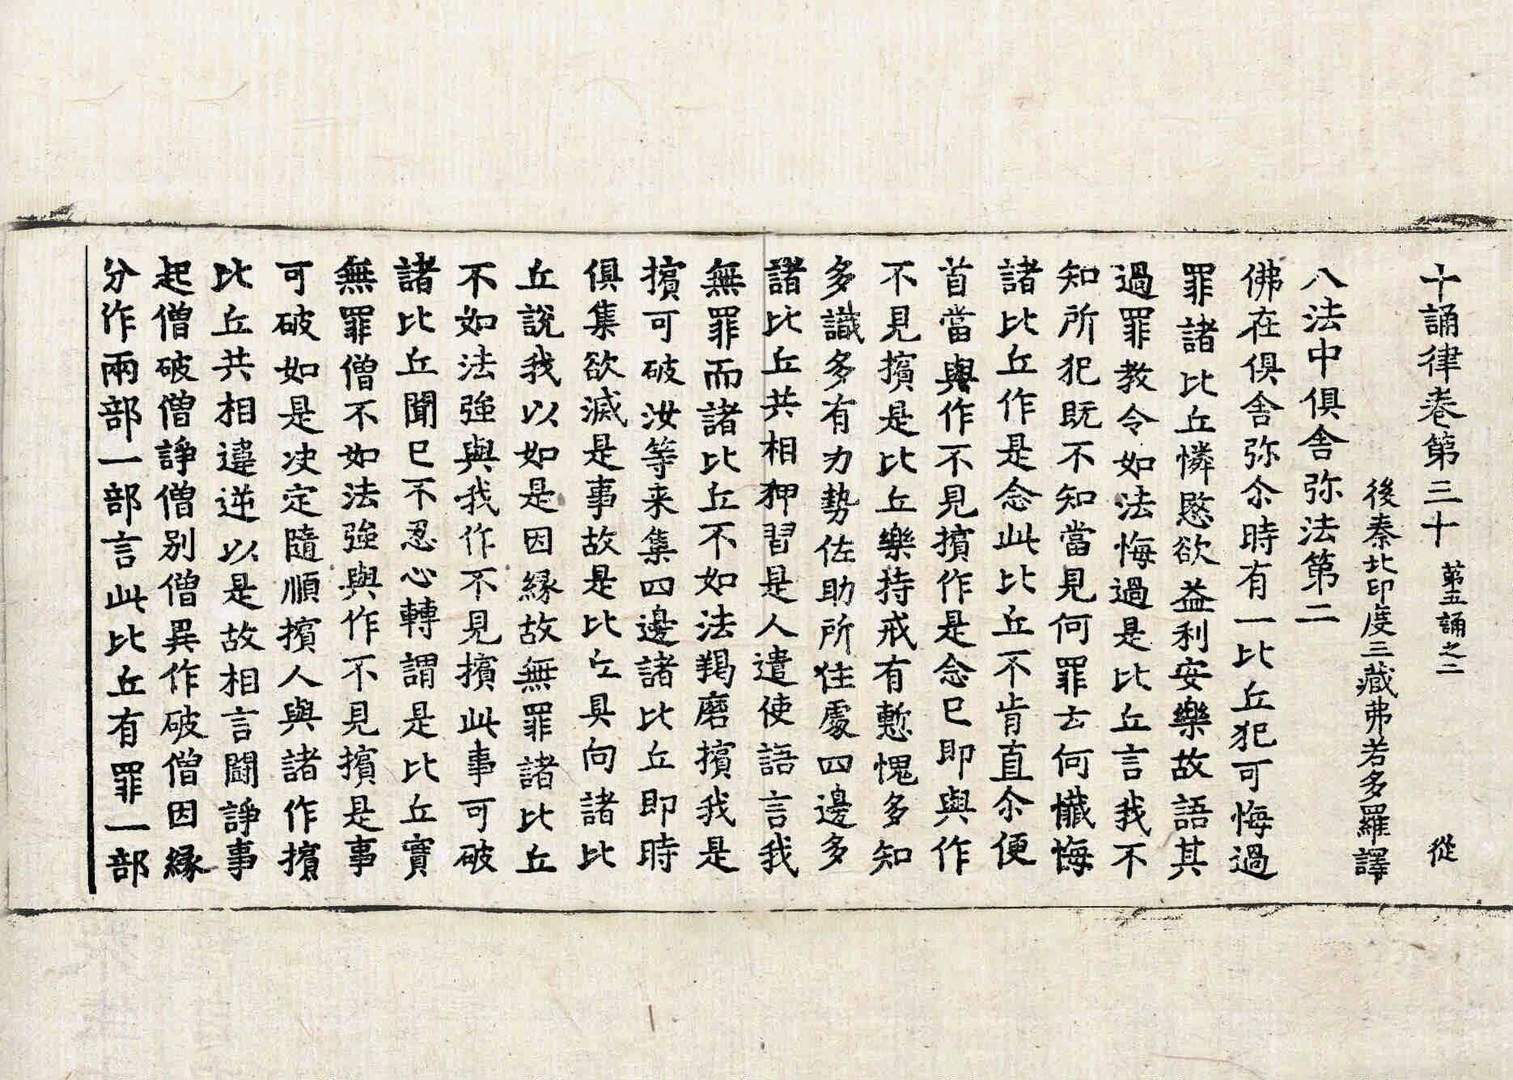 十誦律卷第三十 第五誦之二 從
後秦北印度三藏弗若多羅譯
八法中俱舍弥法第二
佛在俱舍弥尒時有一比丘犯可悔過
罪諸比丘憐愍欲益利安樂故語其
過罪教令如法悔過是比丘言我不
知所犯既不知當見何罪云何懺悔
諸比丘作是念此比丘不肯直尒便
首當與作不見擯作是念已即與作
不見擯是比丘樂持戒有慙愧多知
多識多有力勢佐助所住處四邊多
諸比丘共相狎習是人遣使語言我
無罪而諸比丘不如法羯磨擯我是
擯可破汝等来集四邊諸比丘即時
俱集欲滅是事故是比丘具向諸比
丘說我以如是因緣故無罪諸比丘
不如法強與我作不見擯此事可破
諸比丘聞已不忍心轉謂是比丘實
無罪僧不如法強與作不見擯是事
可破如是决定隨順擯人與諸作擯
比丘共相違逆以是故相言鬪諍事
起僧破僧諍僧別僧異作破僧因緣
分作兩部一部言此比丘有罪一部